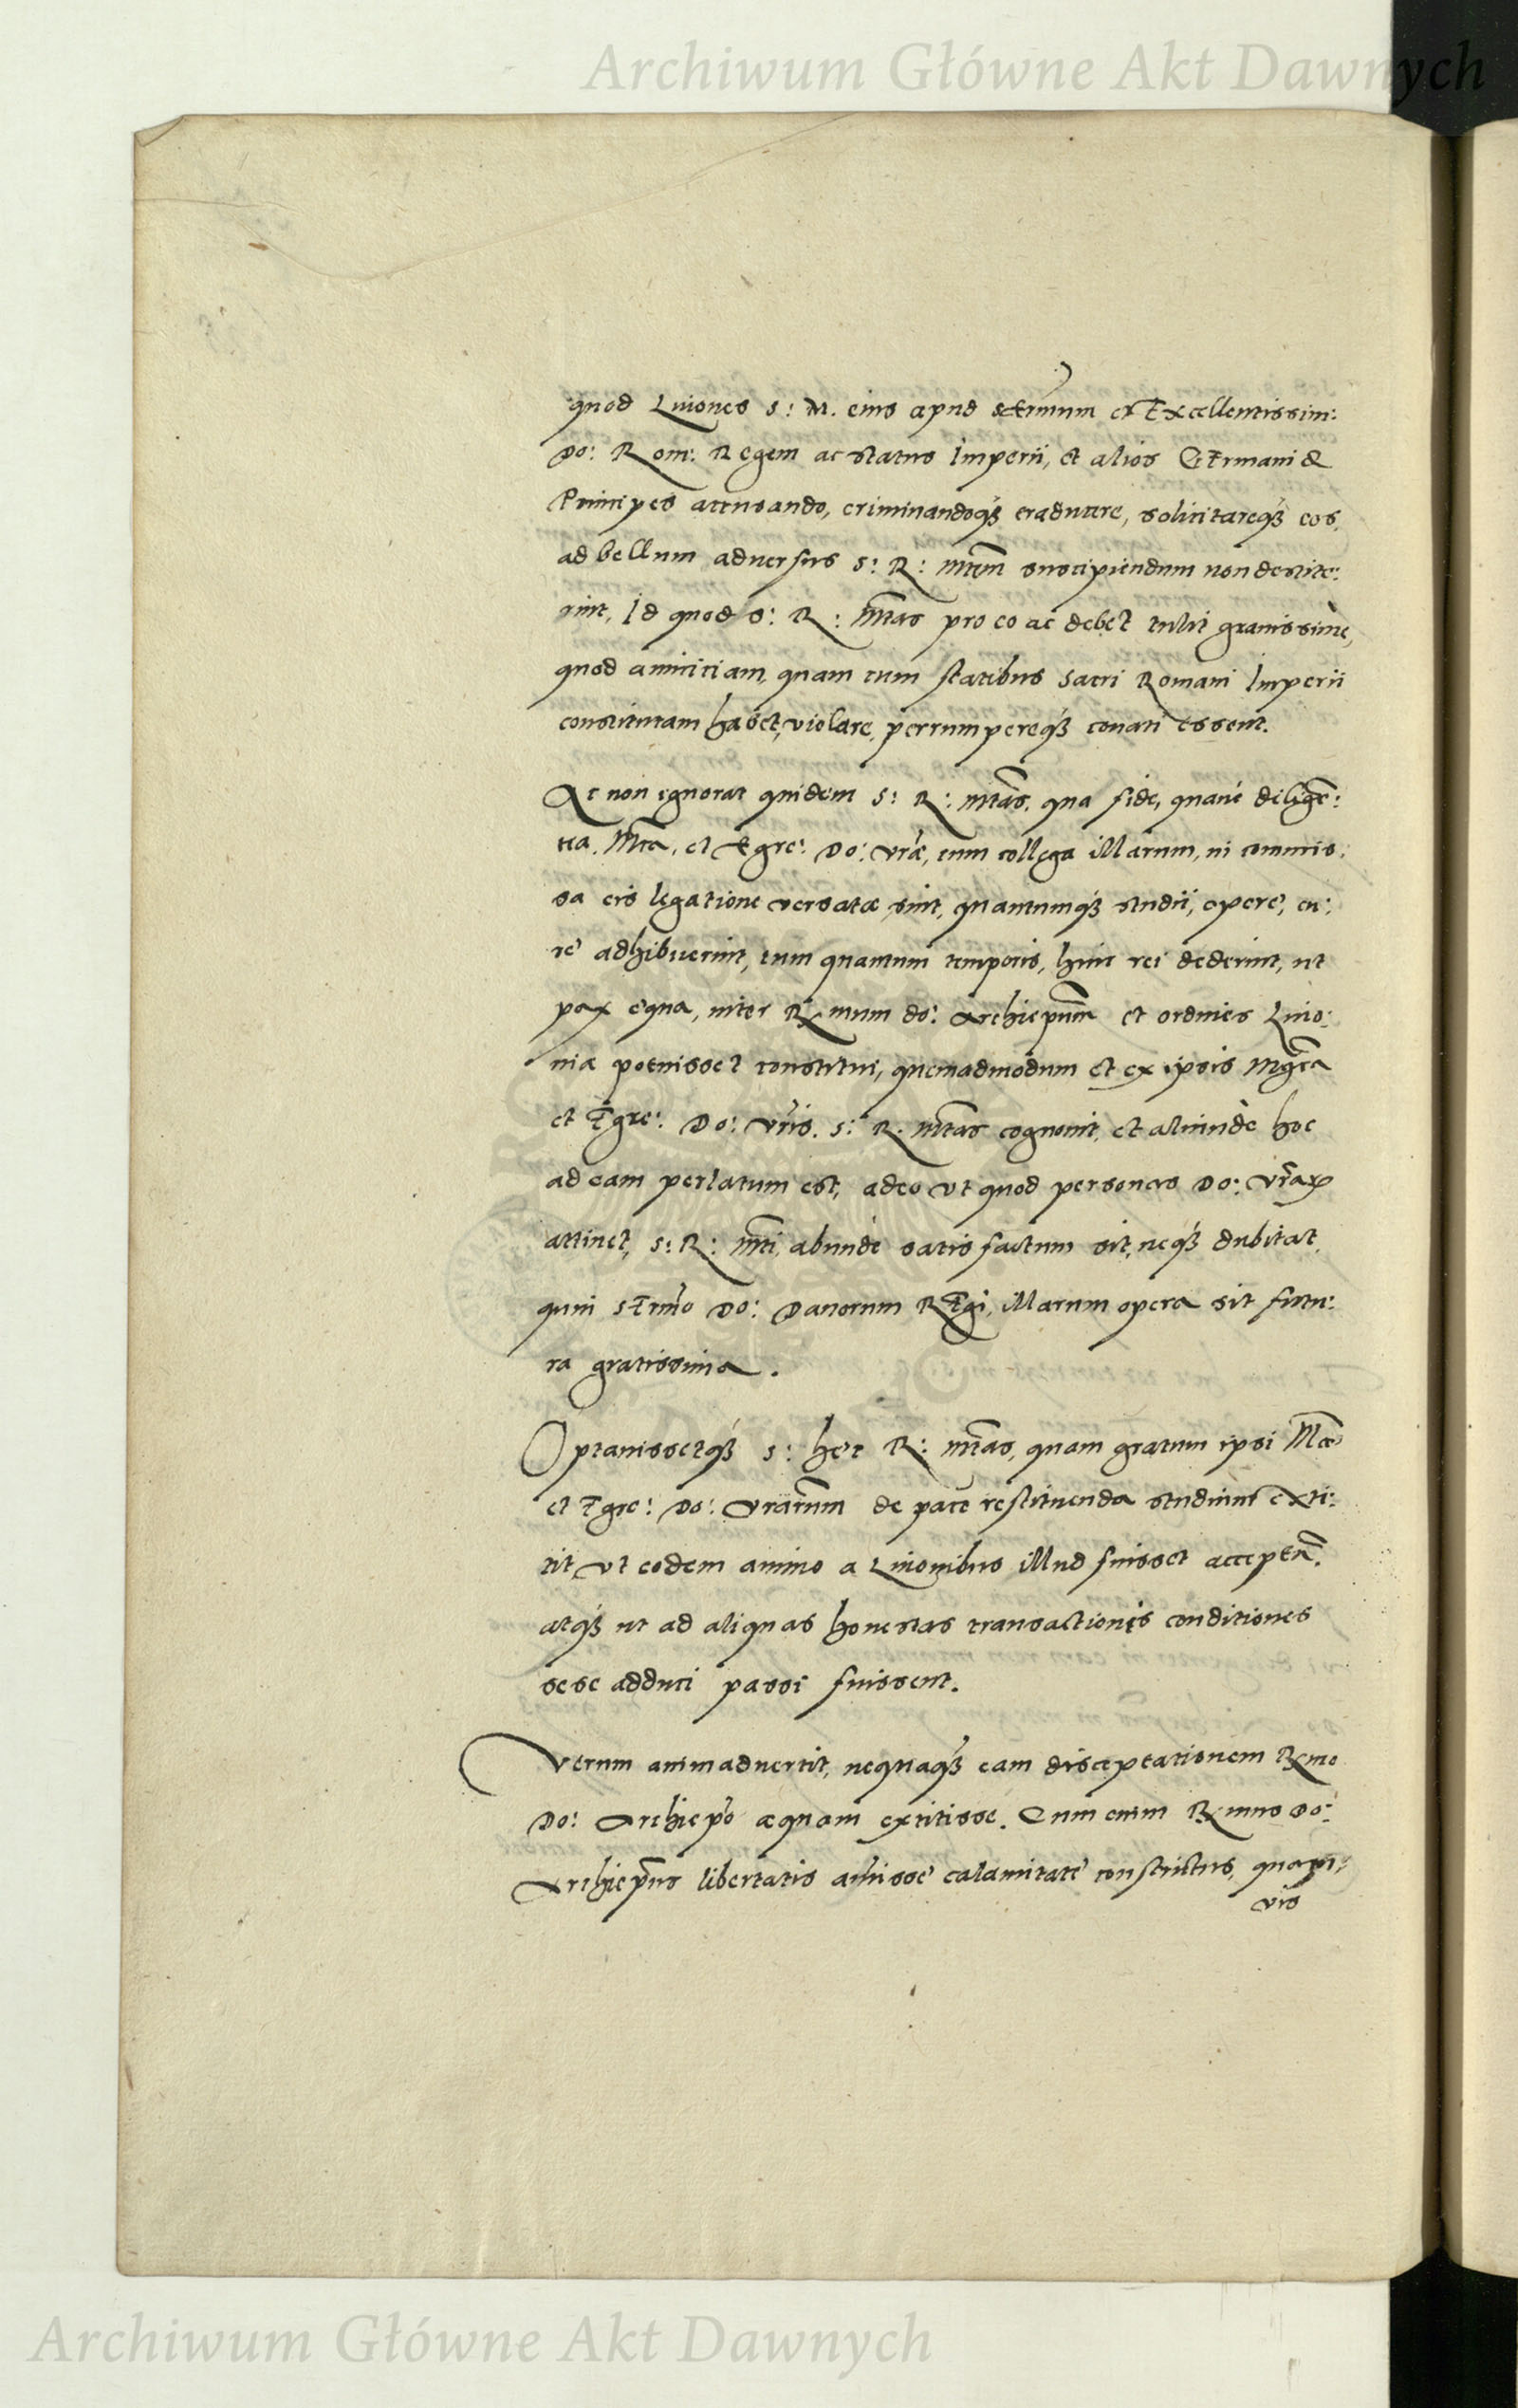 Archiwum Główne Akt Dawnych
quod Liuones S: M. eius apud sermum et Excellentissim:
Do: Rom: Regem ac status Imperii, et alios Germaniæ
Principes accusando, criminandoq3 traducere, solicitareq3 eos,
ad bellum aduersus S: R: mtem suscipiendum non destite:
rint, Id quod S: R: mtas pro eo ac debet tulit grauissime,
quod amicitiam, quam cum statibus sacri Romani Imperii
constitutam habet, violare, perrumpereq3 conati essent.
Ac non ignorat quidem S: R: mtas, qua fide, quaue diligen:
tia, Mca, et Egre: Do: vræ, cum collega illarum, in commis:
sa eis legatione versatæ sint, quantumq3 studii, opere, cu:
re adhibuerint, tum quantum temporis, huic rei dederint, ut
pax equa, inter Rmum do: Archiepum et ordines Liuo:
niæ potuisset constitui, quemadmodum et ex ipsis Mgca
et Egre: Do: vris. S: R. mtas cognouit, et aliunde hoc
ad eam perlatum est, adeo vt quod personas Do: vrar
attinet, S: R: mti, abunde satis factum sit, neq3 dubitat,
quin sermo Do: Danorum Regi, illarum opera sit futu:
ra gratissima.
Optauissetq3 S: hec R: mtas, quam gratum ipsi Mcæ
et Egre: Do: vrarum de pace restituenda studium exti:
tit, vt eodem animo a Liuonibus illud fuisset acceptu.
atq3 ut ad aliquas honestas transactionis conditiones
sese adduci passi fuissent.
Verum animaduertit, nequaq3 eam disceptationem Rmo
Do: Archiepo æquam extitisse. Cum enim Rmus Do:
Archiepus libertatis amisse calamitate constrictus, quam:
vis
Archiwum Główne Akt Dawnych